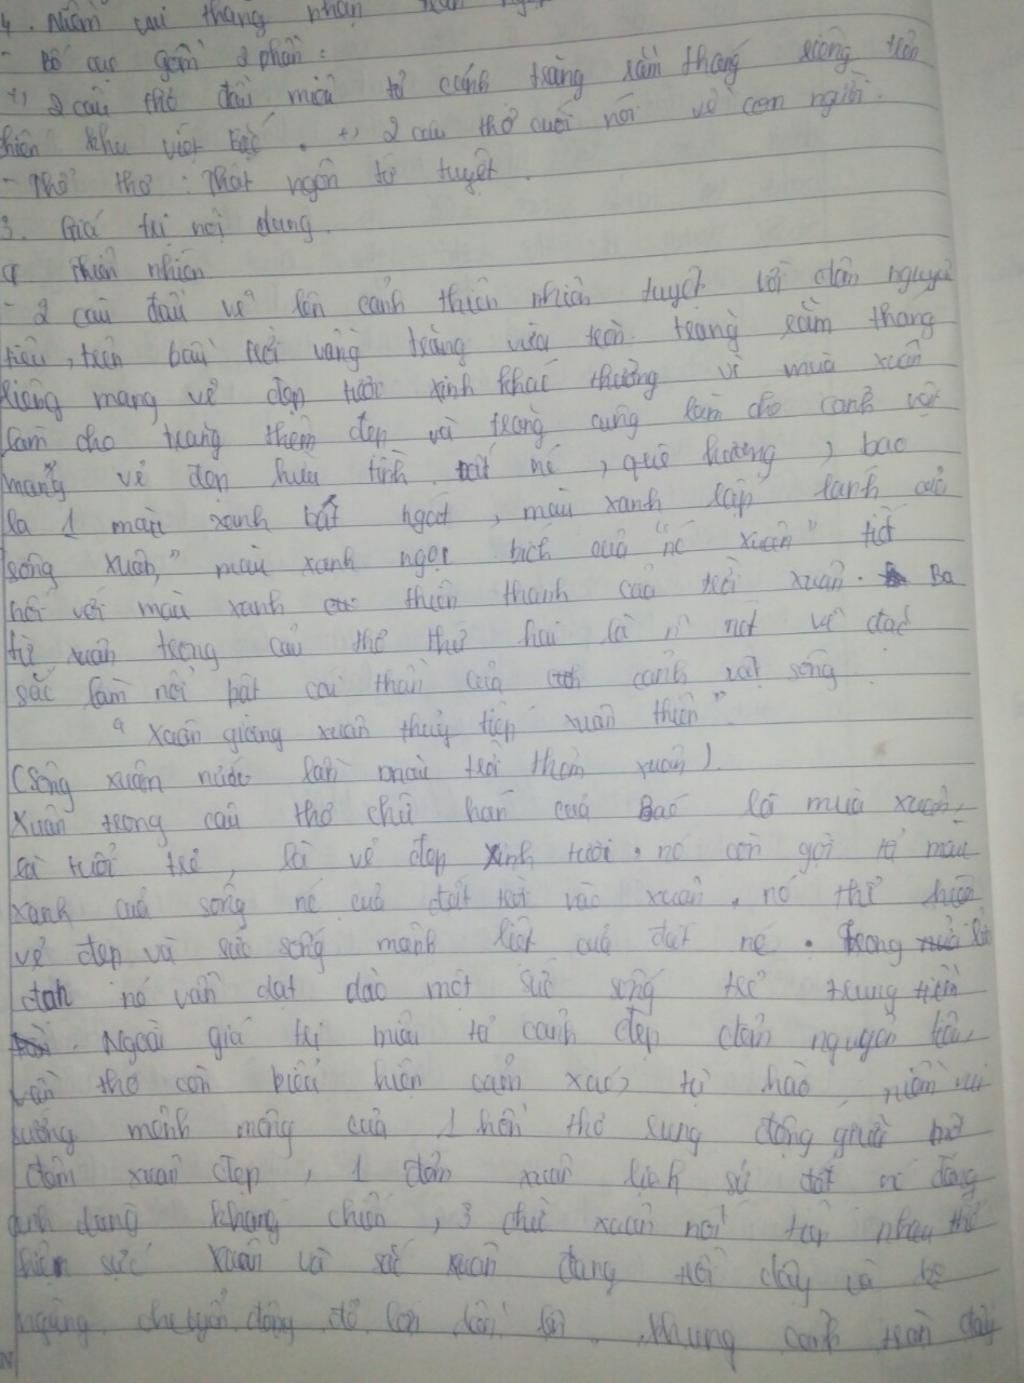 4. Niềm vui thắng nhận
- Bố cục gồm 2 phần:
+, 2 câu thơ đầu miêu tả cảnh trăng rằm tháng giêng trên
chiến khu việt Bắc. +, 2 câu thơ cuối nói về con người.
- Thể thơ: Thất ngôn tứ tuyệt.
3. Giá trị nội dung
a thiên nhiên
- 2 câu đầu vẽ lên cảnh thiên nhiên tuyệt vời đêm nguyên
tiêu, trên bầu trời vầng trăng vừa tròn. trăng rằm tháng
giêng mang vẻ đẹp tươi xinh khác thường vì mùa xuân
làm cho trăng thêm đẹp và trăng cũng làm cho cảnh vật
mang vẻ đẹp hữu tình. đất nc, quê hương, bao
la 1 màu xanh bát ngát, màu xanh lấp lánh của
sông xuân," màu xanh ngọc bích của "nc xuân" tiếp
nối với màu xanh thiên thanh của trời xuân. Ba
từ xuân trong câu thơ thứ hai là n nét vẽ đặc
sắc làm nổi bật cái thần của cảnh vật sống
" Xuân giang xuân thủy tiếp xuân thiên"
(Sông xuân nước lẫn màu trời thêm xuân).
Xuân trong câu thơ chữ hán của Bác là mùa xuân,
là tuổi trẻ, là vẻ đẹp xinh tươi, nó còn gợi tả màu
xanh của sông nc của đất trời vào xuân, nó thể hiện
vẻ đẹp và sức sống mãnh liệt của đất nc. Trong lửa
đạn nó vẫn dạt dào một sức sống trẻ trung tiềm
. Ngoài giá trị miêu tả cảnh đẹp đêm nguyên tiêu,
vần thơ còn biểu hiện cảm xúc, tự hào, niềm vui
sướng mênh mông của 1 hồn thơ rung động giữa
đêm xuân đẹp, 1 đêm xuân lịch sử đất nc đang
anh dũng kháng chiến, 3 chữ xuân nối tiếp nhau thể
hiện sức xuân và sắc xuân đang trỗi dậy và ko
ngừng chuyển động để lan dần lên. Khung cảnh tràn đầy